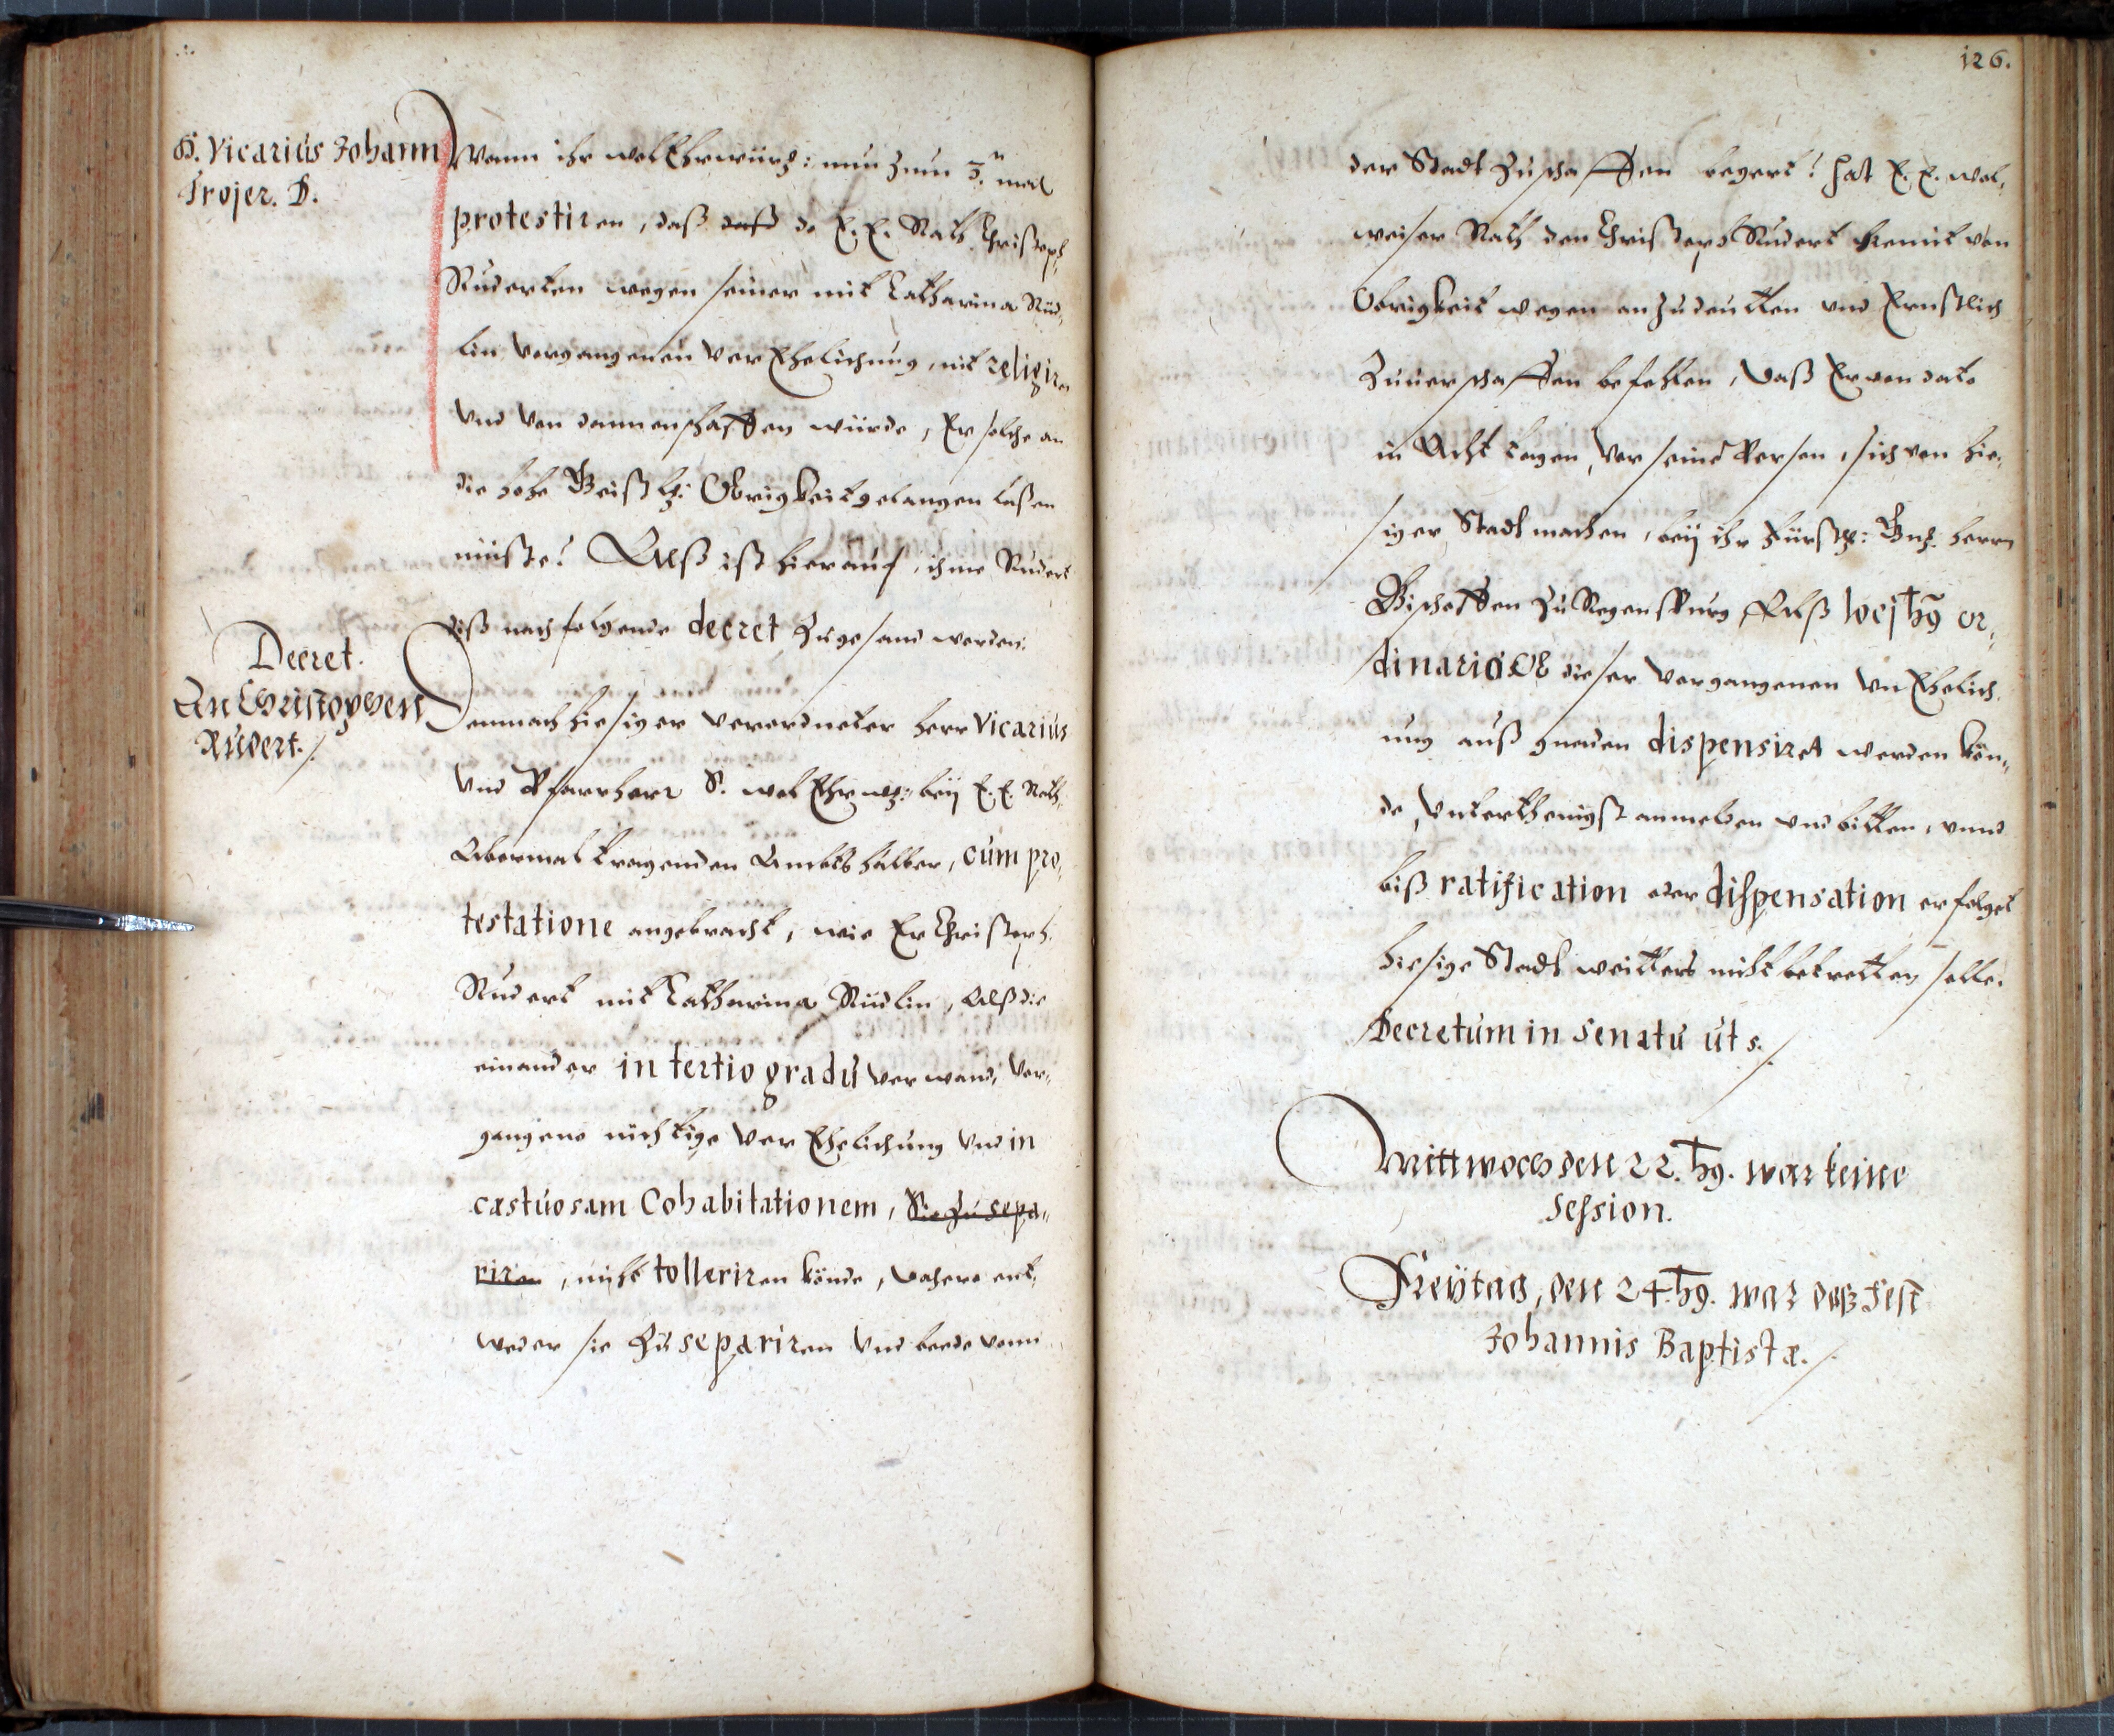 H. Vicarius Johann
Trojer. D.
Wann ihr wol Ehrwürd: nun zum 3.n mal
protestiren, daß daß do E. E. Rath Christoph
Ruderten wegen seiner mit Catharina Rüd„
lin vergangenen VerEhelichung, nit religiren
Vnd von dannen schaffen würde, Er solche an
die hohe Geistl: Obrigkeit gelangen laßen
müste! Alß ist hierauf, ihme Rudert
diß nachfolgende decret zugesand worden:
Decret.
An Christophen
Rudert./.
Demnach hiesiger verordneter Herr Vicarius
Vnd Pfarrherr S. wol Ehrw: beÿ E. E. Rath
Abermal tragenden Ambts halber, cum pro„
testatione angebracht, wie Er Christoph
Rudert mit Catharina Rüdlin, Alß die
einander in tertio gradu verwand, Ver„
gangene nichtige VerEhelichung Vnd in
cæstuosam Cohabitationem, Sie zu sepa„
riren, nicht tolleriren könde, dahero ent„
weder sie zu separiren Vnd beede vonn
126.
der Stadt zu schaffen begert! hat E. E. wol„
weiser Rath den Christoph Rudert hiemit von
Obrigkeit wegen anzudeutten vnd Ernstlich
Zuuerschaffen befehlen, Daß Er von dato
in Acht tagen, Vor seine Person, sich von hie„
siger Stadt machen, beÿ ihr Fürstl: Gnd. herrn
Bischoffen zu Regenspurg Alß loci hg or„
dinario Ob dieser Vergangenen VerEhelich„
ung auß gnaden dispensiret werden kön„
de, Vnterthenigst anmelden vnd bitten, vnnd
biß ratification oder dispensation erfolget
hiesige Stadt weitters nicht betretten solle.
Decretum in Senatu ut s./.
Mittwochs den 22. hg. war keine
Session.
Freÿtag, den 24. hg. war daß Fest
Johannis Baptistæ./.